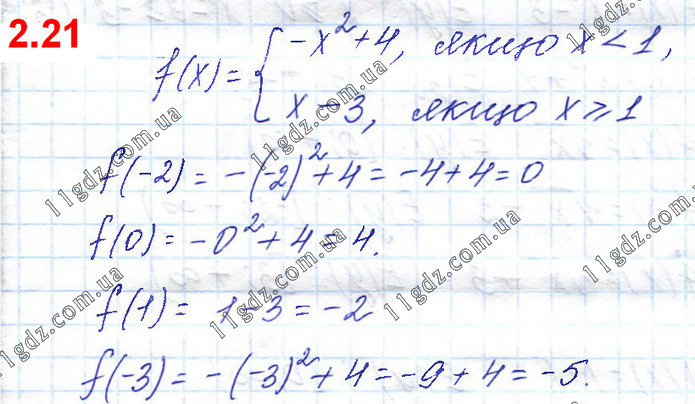 2.21
f(x) = { -x² + 4, якщо x < 1,
x - 3, якщо x ⩾ 1
f(-2) = -(-2)² + 4 = -4 + 4 = 0
f(0) = -0² + 4 = 4.
f(1) = 1 - 3 = -2
f(-3) = -(-3)² + 4 = -9 + 4 = -5.
11gdz.com.ua
11gdz.com.ua
11gdz.com.ua
11gdz.com.ua
11gdz.com.ua
11gdz.com.ua